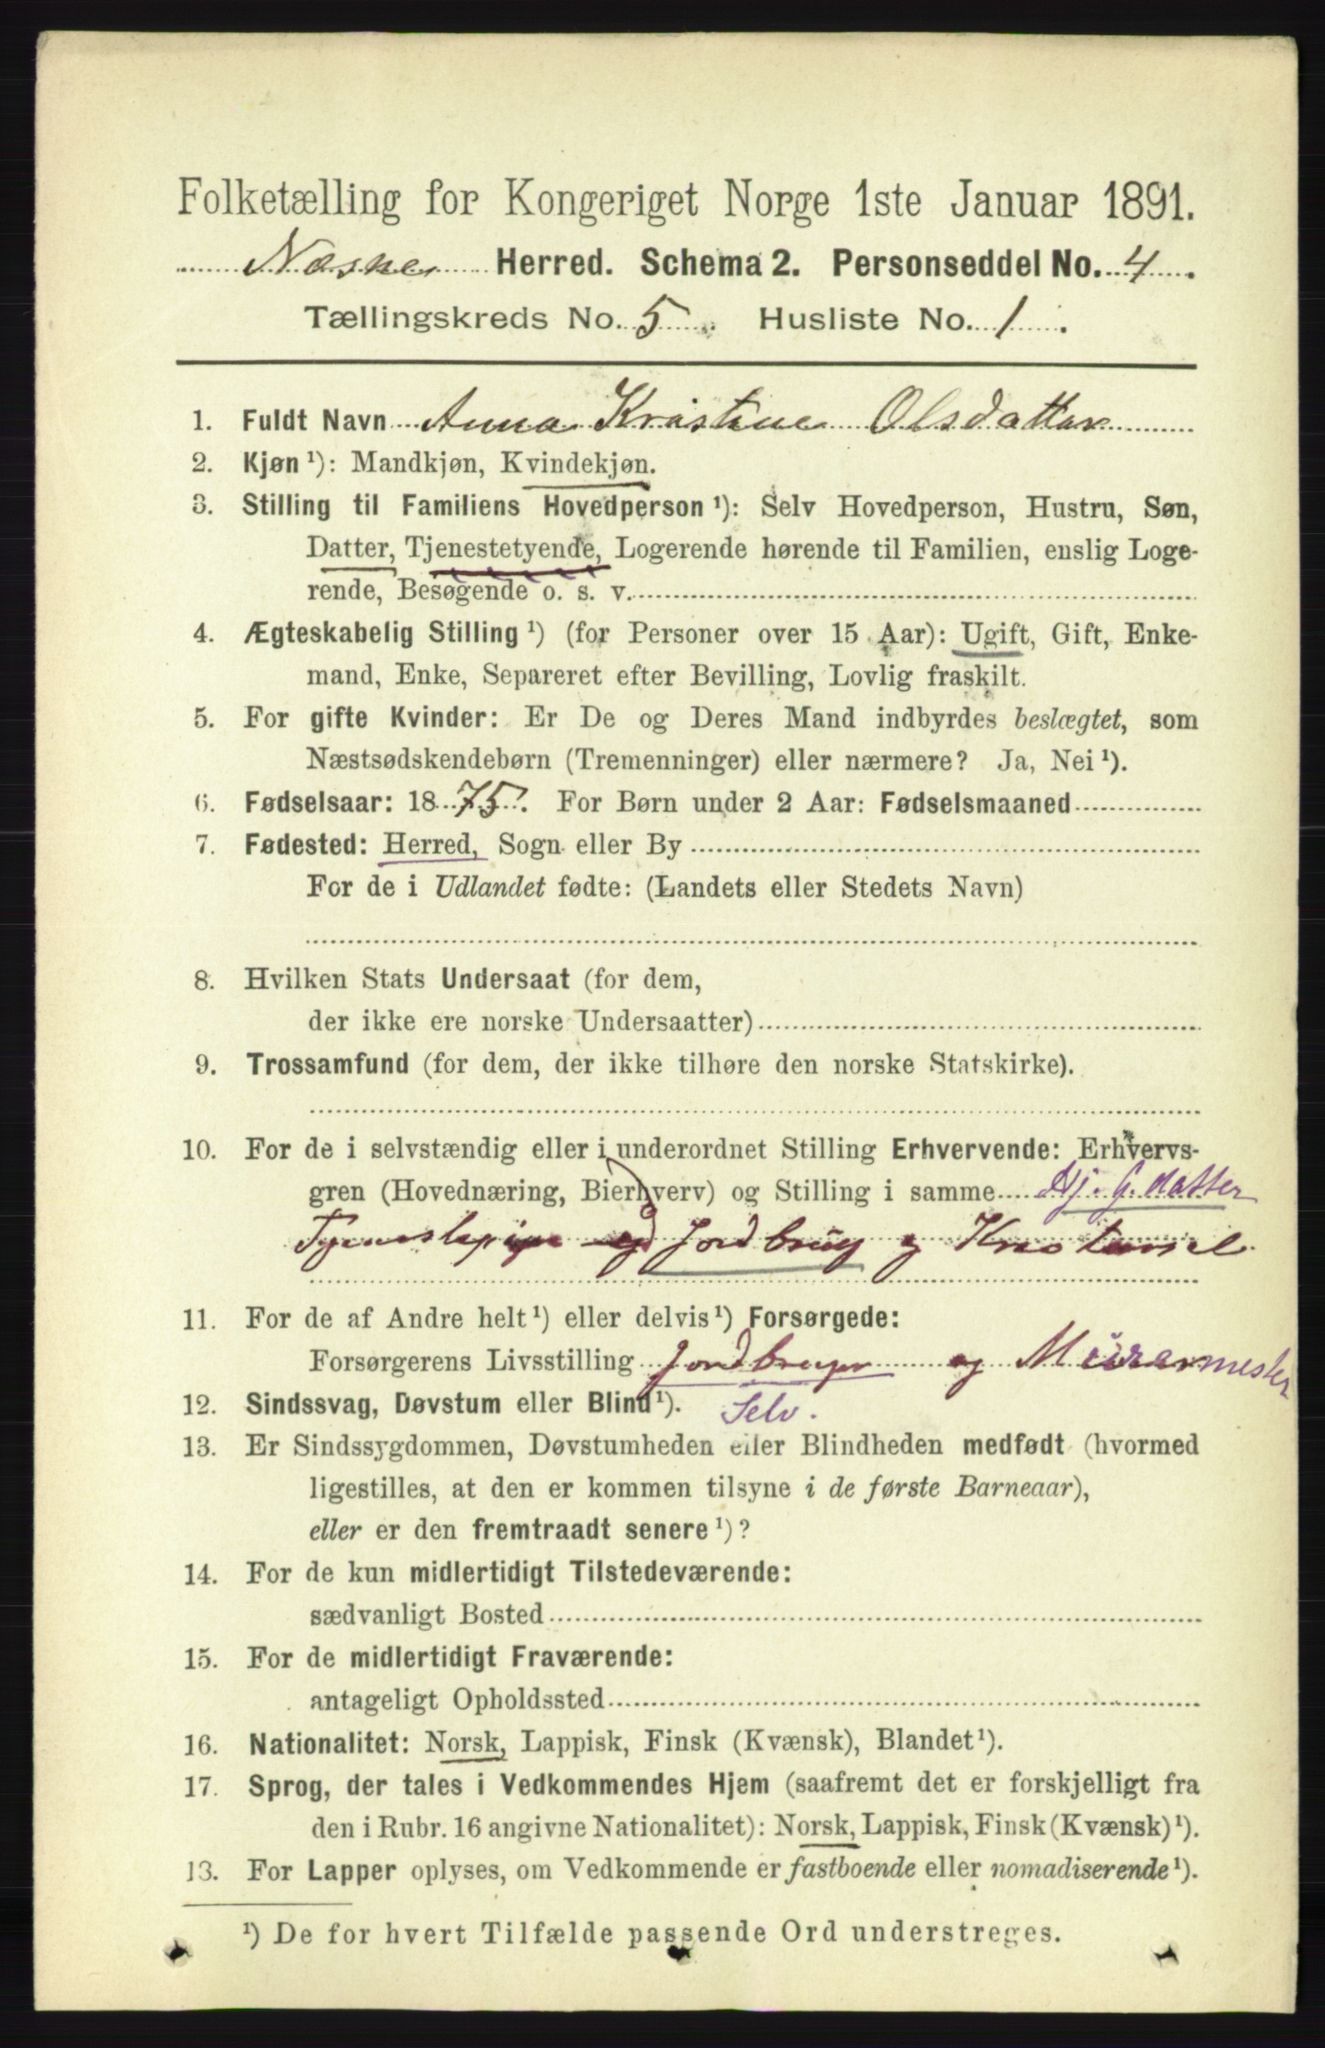 Folketælling for Kongeriget Norge 1ste Januar 1891.
Næsne Herred. Schema 2. Personseddel No. 4.
Tællingskreds No. 5. Husliste No. 1.
1. Fuldt Navn Anna Kristine Olsdatter
2. Kjøn ¹): Mandkjøn, Kvindekjøn.
3. Stilling til Familiens Hovedperson ¹): Selv Hovedperson, Hustru, Søn,
Datter, Tjenestetyende, Logerende hørende til Familien, enslig Loge-
rende, Besøgende o. s. v.
4. Ægteskabelig Stilling ¹) (for Personer over 15 Aar): Ugift, Gift, Enke-
mand, Enke, Separeret efter Bevilling, Lovlig fraskilt.
5. For gifte Kvinder: Er De og Deres Mand indbyrdes beslægtet, som
Næstsødskendebørn (Tremenninger) eller nærmere? Ja, Nei ¹).
6. Fødselsaar: 1875. For Børn under 2 Aar: Fødselsmaaned
7. Fødested: Herred, Sogn eller By
For de i Udlandet fødte: (Landets eller Stedets Navn)
8. Hvilken Stats Undersaat (for dem,
der ikke ere norske Undersaatter)
9. Trossamfund (for dem, der ikke tilhøre den norske Statskirke).
10. For de i selvstændig eller i underordnet Stilling Erhvervende: Erhvervs-
gren (Hovednæring, Bierhverv) og Stilling i samme Hj. G. datter
Tjenestepige ved Jordbrug og
11. For de af Andre helt ¹) eller delvis ¹) Forsørgede:
Forsørgerens Livsstilling Jordbruger og Murermester
12. Sindssvag, Døvstum eller Blind ¹). Selv.
13. Er Sindssygdommen, Døvstumheden eller Blindheden medfødt (hvormed
ligestilles, at den er kommen tilsyne i de første Barneaar),
eller er den fremtraadt senere ¹)?
14. For de kun midlertidigt Tilstedeværende:
sædvanligt Bosted
15. For de midlertidigt Fraværende:
antageligt Opholdssted
16. Nationalitet: Norsk, Lappisk, Finsk (Kvænsk), Blandet ¹).
17. Sprog, der tales i Vedkommendes Hjem (saafremt det er forskjelligt fra
den i Rubr. 16 angivne Nationalitet): Norsk, Lappisk, Finsk (Kvænsk) ¹).
13. For Lapper oplyses, om Vedkommende er fastboende eller nomadiserende ¹).
¹) De for hvert Tilfælde passende Ord understreges.